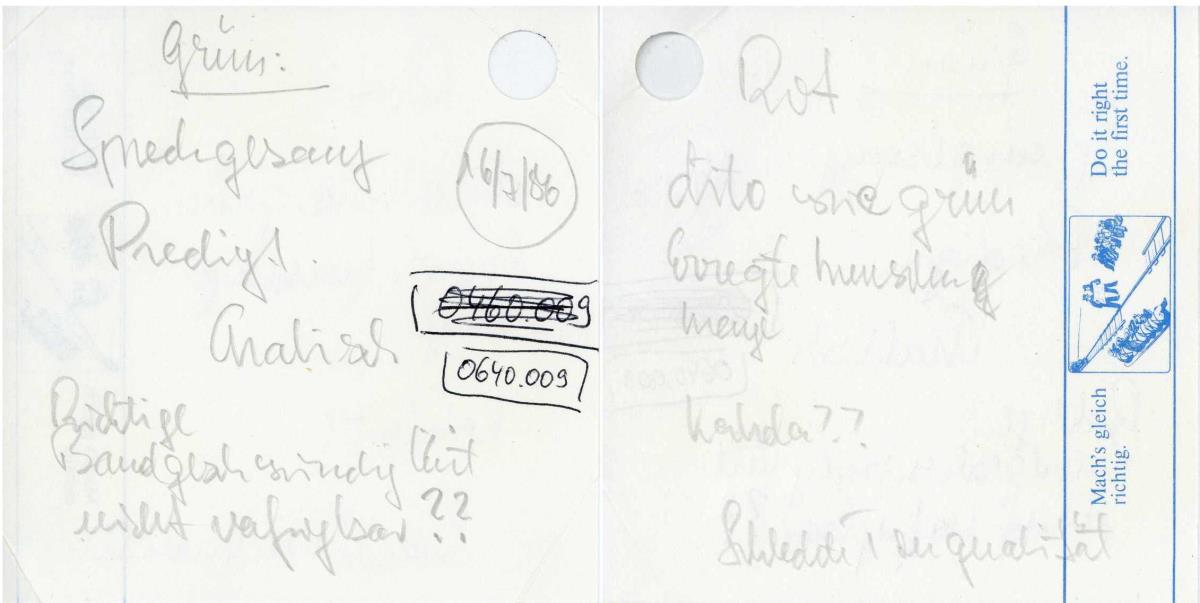 Grün:
Sprechgesang
16/7/86
Predigt.
0460.009
Arabisch
0640.009
Richtige
Bandgeschwindigkeit
nicht verfügbar ??
Rot
dito wie grün
Erregte Menschen
menge
??
Schlechte Tonqualität
Do it right
the first time.
Mach's gleich
richtig.